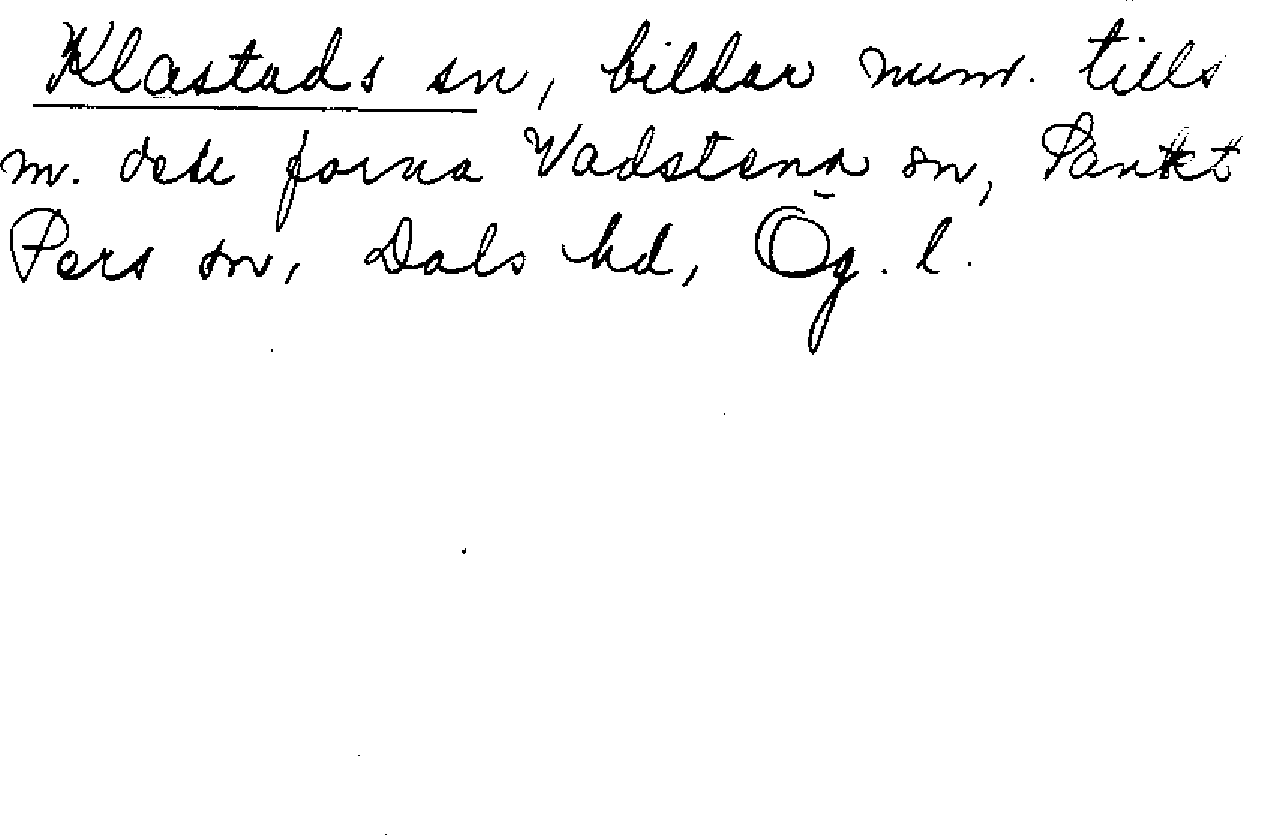 Klastads sn, bildar num. tills
m. dele forna Vadstena sn, Sankt
Pers sn, Dals hd, Ög. l.